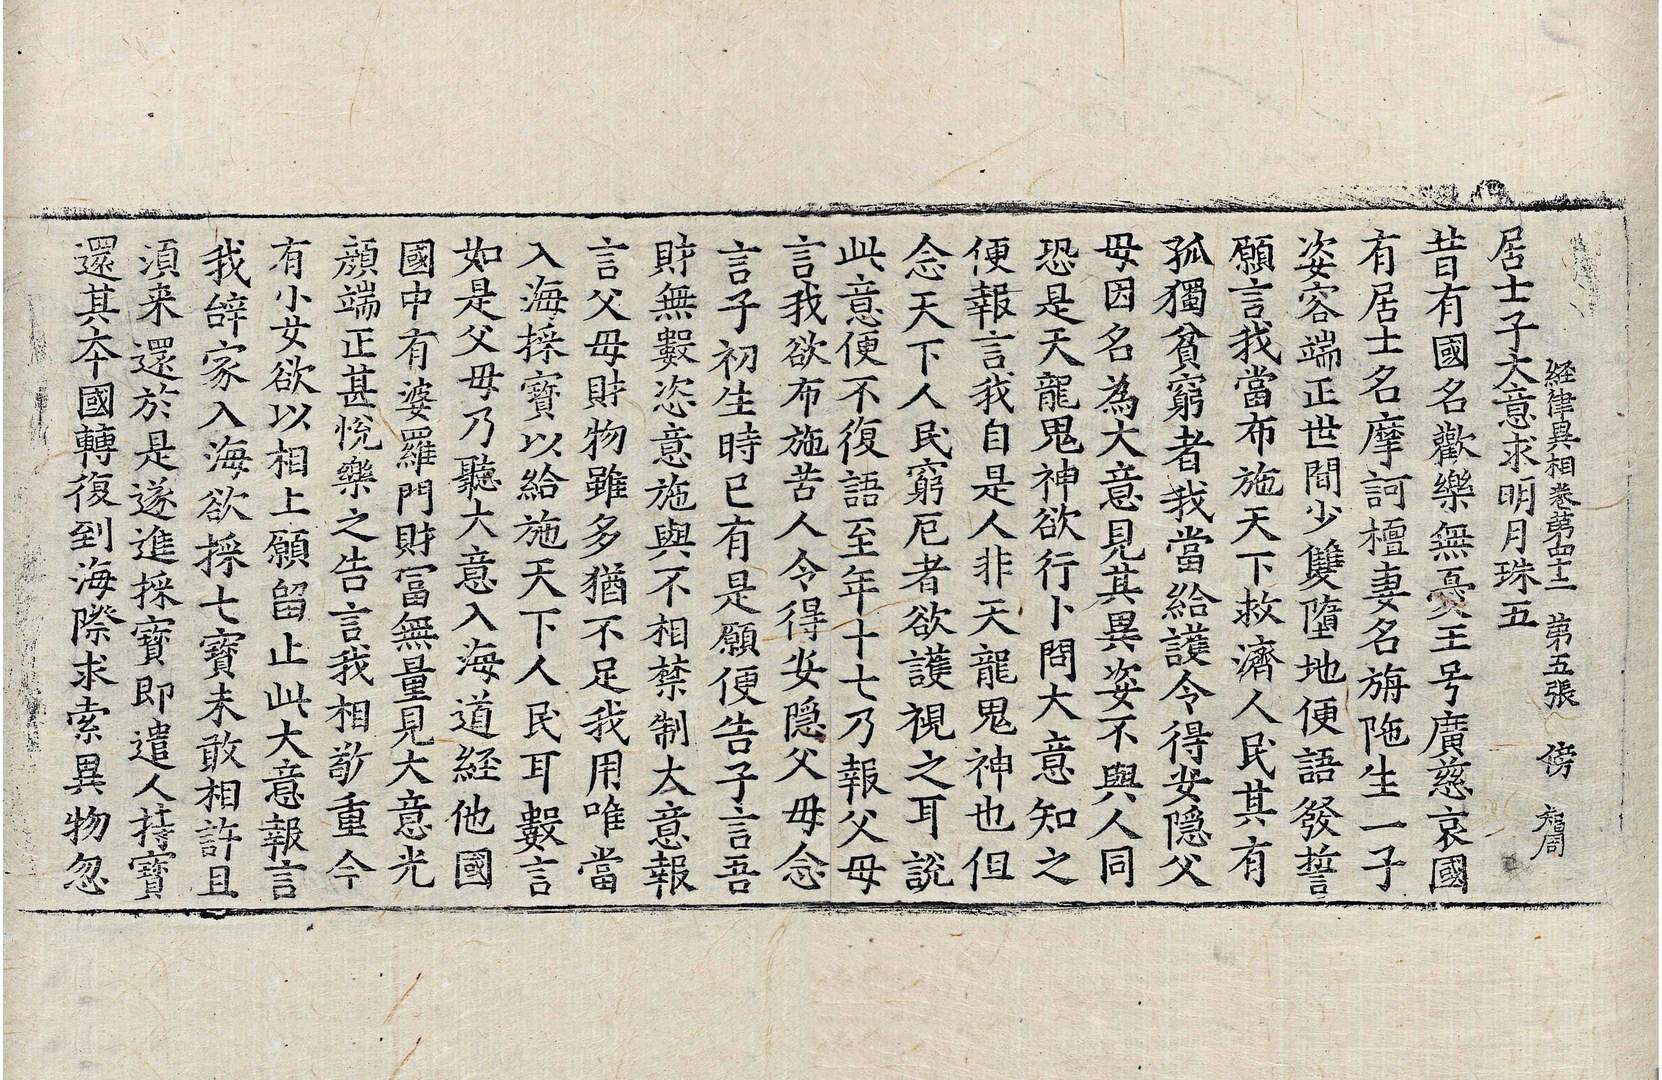 経律異相巻苐四十二 第五張 傍 
居士子大意求明月珠五
昔有國名歡樂無憂王号廣慈哀國
有居士名摩訶檀妻名旃陁生一子
姿容端正世間少雙墮地便語發誓
願言我當布施天下救濟人民其有
孤獨貧窮者我當給護令得安隱父
母因名為大意見其異姿不與人同
恐是天龍鬼神欲行卜問大意知之
便報言我自是人非天龍鬼神也但
念天下人民窮厄者欲護視之耳說
此意便不復語至年十七乃報父母
言我欲布施苦人令得安隱父母念
言子初生時已有是願便告子言吾
財無數恣意施與不相禁制大意報
言父母財物雖多猶不足我用唯當
入海採寶以給施天下人民耳數言
如是父母乃聽大意入海道經他國
國中有婆羅門財冨無量見大意光
顏端正甚悅樂之告言我相敬重今
有小女欲以相上願留止此大意報言
我辝家入海欲採七寶未敢相許且
湏来還於是遂進採寶即遣人持寶
還其夲國轉復到海際求索異物忽